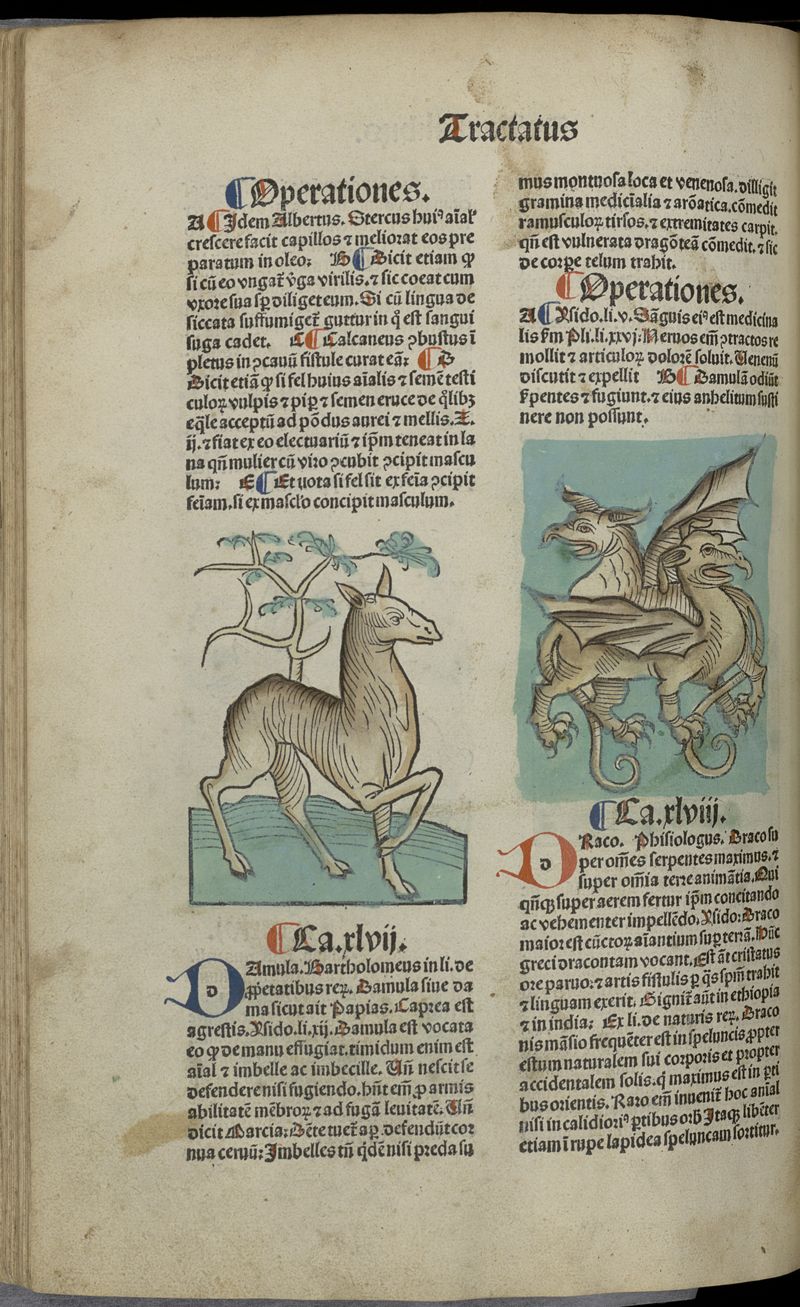 Tractatus
Operationes.
A Idem Albertus. Stercus huiꝰ aīal'
crescere facit capillos ⁊ meliorat eos pre
paratum in oleo: B Dicit etiam ꝙ
si cū eo vngat᷑ v̓ga virilis. ⁊ sic coeat cum
vxore sua sꝑ diliget eum. Si cū lingua de
siccata suffumiget᷑ guttur in q̄ est sangui
suga cadet. C Calcaneus ꝯbustus ī
pletus in ꝯcauū fistule curat eā: D
Dicit etiā ꝙ si fel huius aīalis ⁊ semē testi
culoꝝ vulpis ⁊ pipꝭ ⁊ semen eruce de q̄libꝫ
eq̄le acceptū ad pōdus aurei ⁊ mellis. Ʒ.
ij. ⁊ fiat ex eo electuariū ⁊ ip̄m teneat in la
na qn̄ mulier cū viro ꝯcubit ꝯcipit mascu
lum: E Et nota si fel sit ex fēīa ꝯcipit
fēīam. si ex masc̄lo concipit masculum.
Ca.xlvij.
DAmula. Bartholomeus in li. de
ꝓprietatibus reꝝ. Damula siue da
ma sicut ait Papias. Caprea est
agrestis. Ysido. li. xij. Damula est vocata
eo ꝙ de manu effugiat. timidum enim est
aīal ⁊ imbelle ac imbecille. Vn̄ nescit se
defendere nisi fugiendo. hn̄t em̄ ꝓ armis
abilitatē mēbroꝝ ⁊ ad fugā leuitatē. Vn̄
dicit Marcia: Dēte tuet᷑ aꝑ defendūt cor
nua ceruū: Imbelles tn̄ q̄dē nisi preda su
mus montuosa loca et venenosa. dilligit
gramina medicīalia ⁊ arōatica. cōmedit
ramusculoꝝ tirsos. ⁊ extremitates carpit.
qn̄ est vulnerata dragōteā cōmedit. ⁊ sic
de corpe telum trahit.
Operationes.
A Ysido. li. v. Sāguis eiꝰ est medicina
lis ẜm Pli. li. xxvj. Neruos em̄ ꝯtractos re
mollit ⁊ articuloꝝ dolorē soluit. Venenū
discutit ⁊ expellit B Damulā odiūt
ẜpentes ⁊ fugiunt. ⁊ eius anhelitum susti
nere non possunt.
Ca.xlviij.
DRaco. Phisiologus. Draco su
per om̄es serpentes maximus. ⁊
super om̄ia terre animātia. Qui
qn̄qꝫ super aerem fertur ip̄m concitando
ac vehementer impellēdo. Ysido: Draco
maior est cūctoꝝ aīantium suꝑ terrā. Hūc
greci dracontam vocant. Est āt cristatus
ore paruo: ⁊ artis fistulis ꝑ q̄s sp̄m trahit
⁊ linguam exerit. Gignit᷑ aūt in ethiopia
⁊ in india: Ex li. de naturis reꝝ. Draco
nis māsio frequēter est in speluncis ꝓpter
estum naturalem sui corporis et propter
accidentalem solis. q̄ maximus est in ꝑti
bus orientis. Raro em̄ inuenit᷑ hoc anīal
nisi in calidioriꝰ ꝑtibus orb̄. Itaqꝫ libēter
etiam ī rupe lapidea speluncam sortitur.